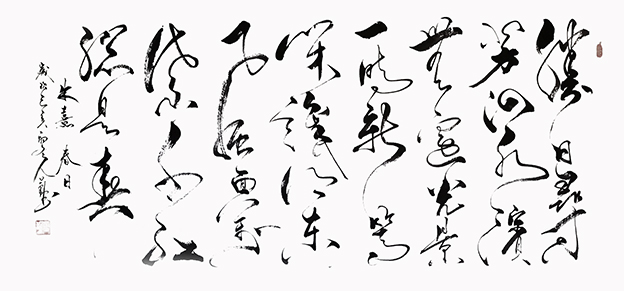 勝日尋
芳泗水濱
無邊光景
一時新等
閒識得東
風面萬
紫千紅
總是春
朱熹 春日
己亥